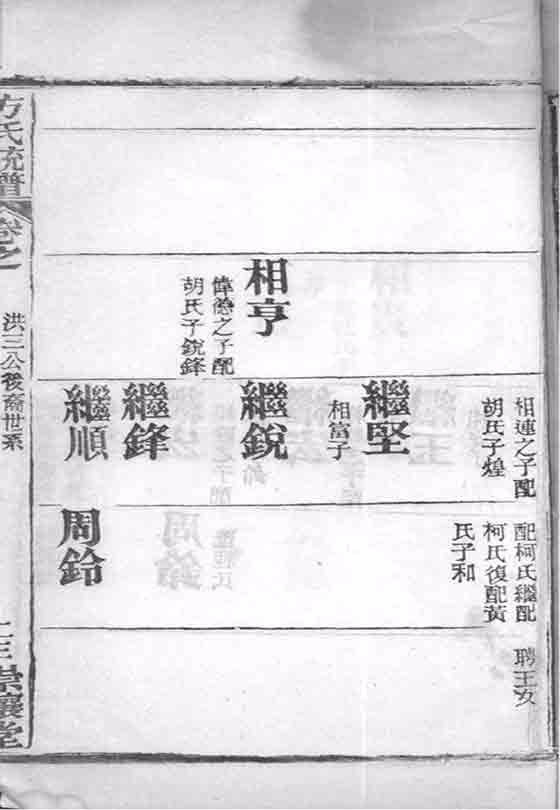 相連之子配
胡氏子煌
配柯氏繼配
柯氏復配黃
氏子和
聘王女
繼堅
相富子
相亨
偉德之子配
胡氏子銳鋒
繼銳
繼鋒
繼順
周鈴
方氏統譜
卷之一
洪三公後裔世系
崇讓堂